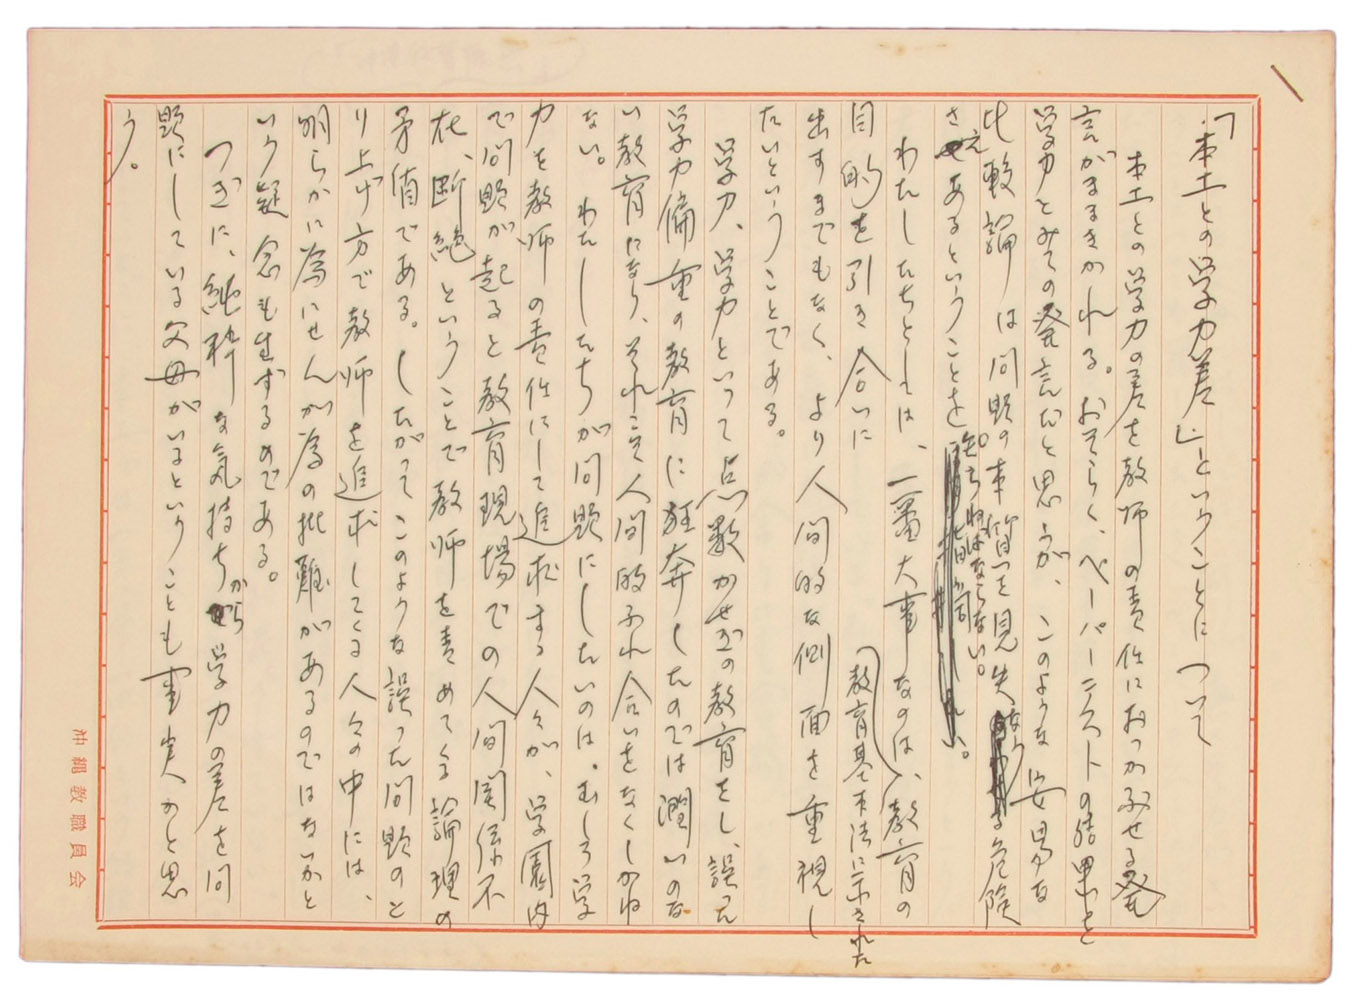 「本土との学力差」ということについて
本土との学力の差を教師の責任におっかぶせる発
言がまゝきかれる。おそらく、ペーパーテストの結果を
学力とみての発言だと思うが、このような安易な
比較論は問題の本質を見失なう危険
さえあるということを知らねばならない。
わたしたちとしは、一番大事なのは、教育の
目的を引き合いに(教育基本法に示された
出すまでもなく、より人間的な側面を重視し
たいということである。
学力、学力といって点数かせぎの教育をし、誤った
学力偏重の教育に狂奔したのでは潤いのな
い教育になり、それこそ人間的ふれ合いをなくしかね
ない。わたしたちが問題にしたいのは、むしろ学
力を教師の責任にして追求する人々が、学園内
で問題が起ると教育現場での人間関係不
在、断絶ということで教師を責めてくる論理の
矛盾である。したがってこのような誤った問題のと
り上げ方で教師を追求してくる人々の中には、
明らかに為にせんが為の批難があるのではないかと
いう疑念も生ずるのである。
つぎに、純粋な気持ちから学力の差を問
題にしている父母がいるということも事実かと思
う。
沖縄教職員会